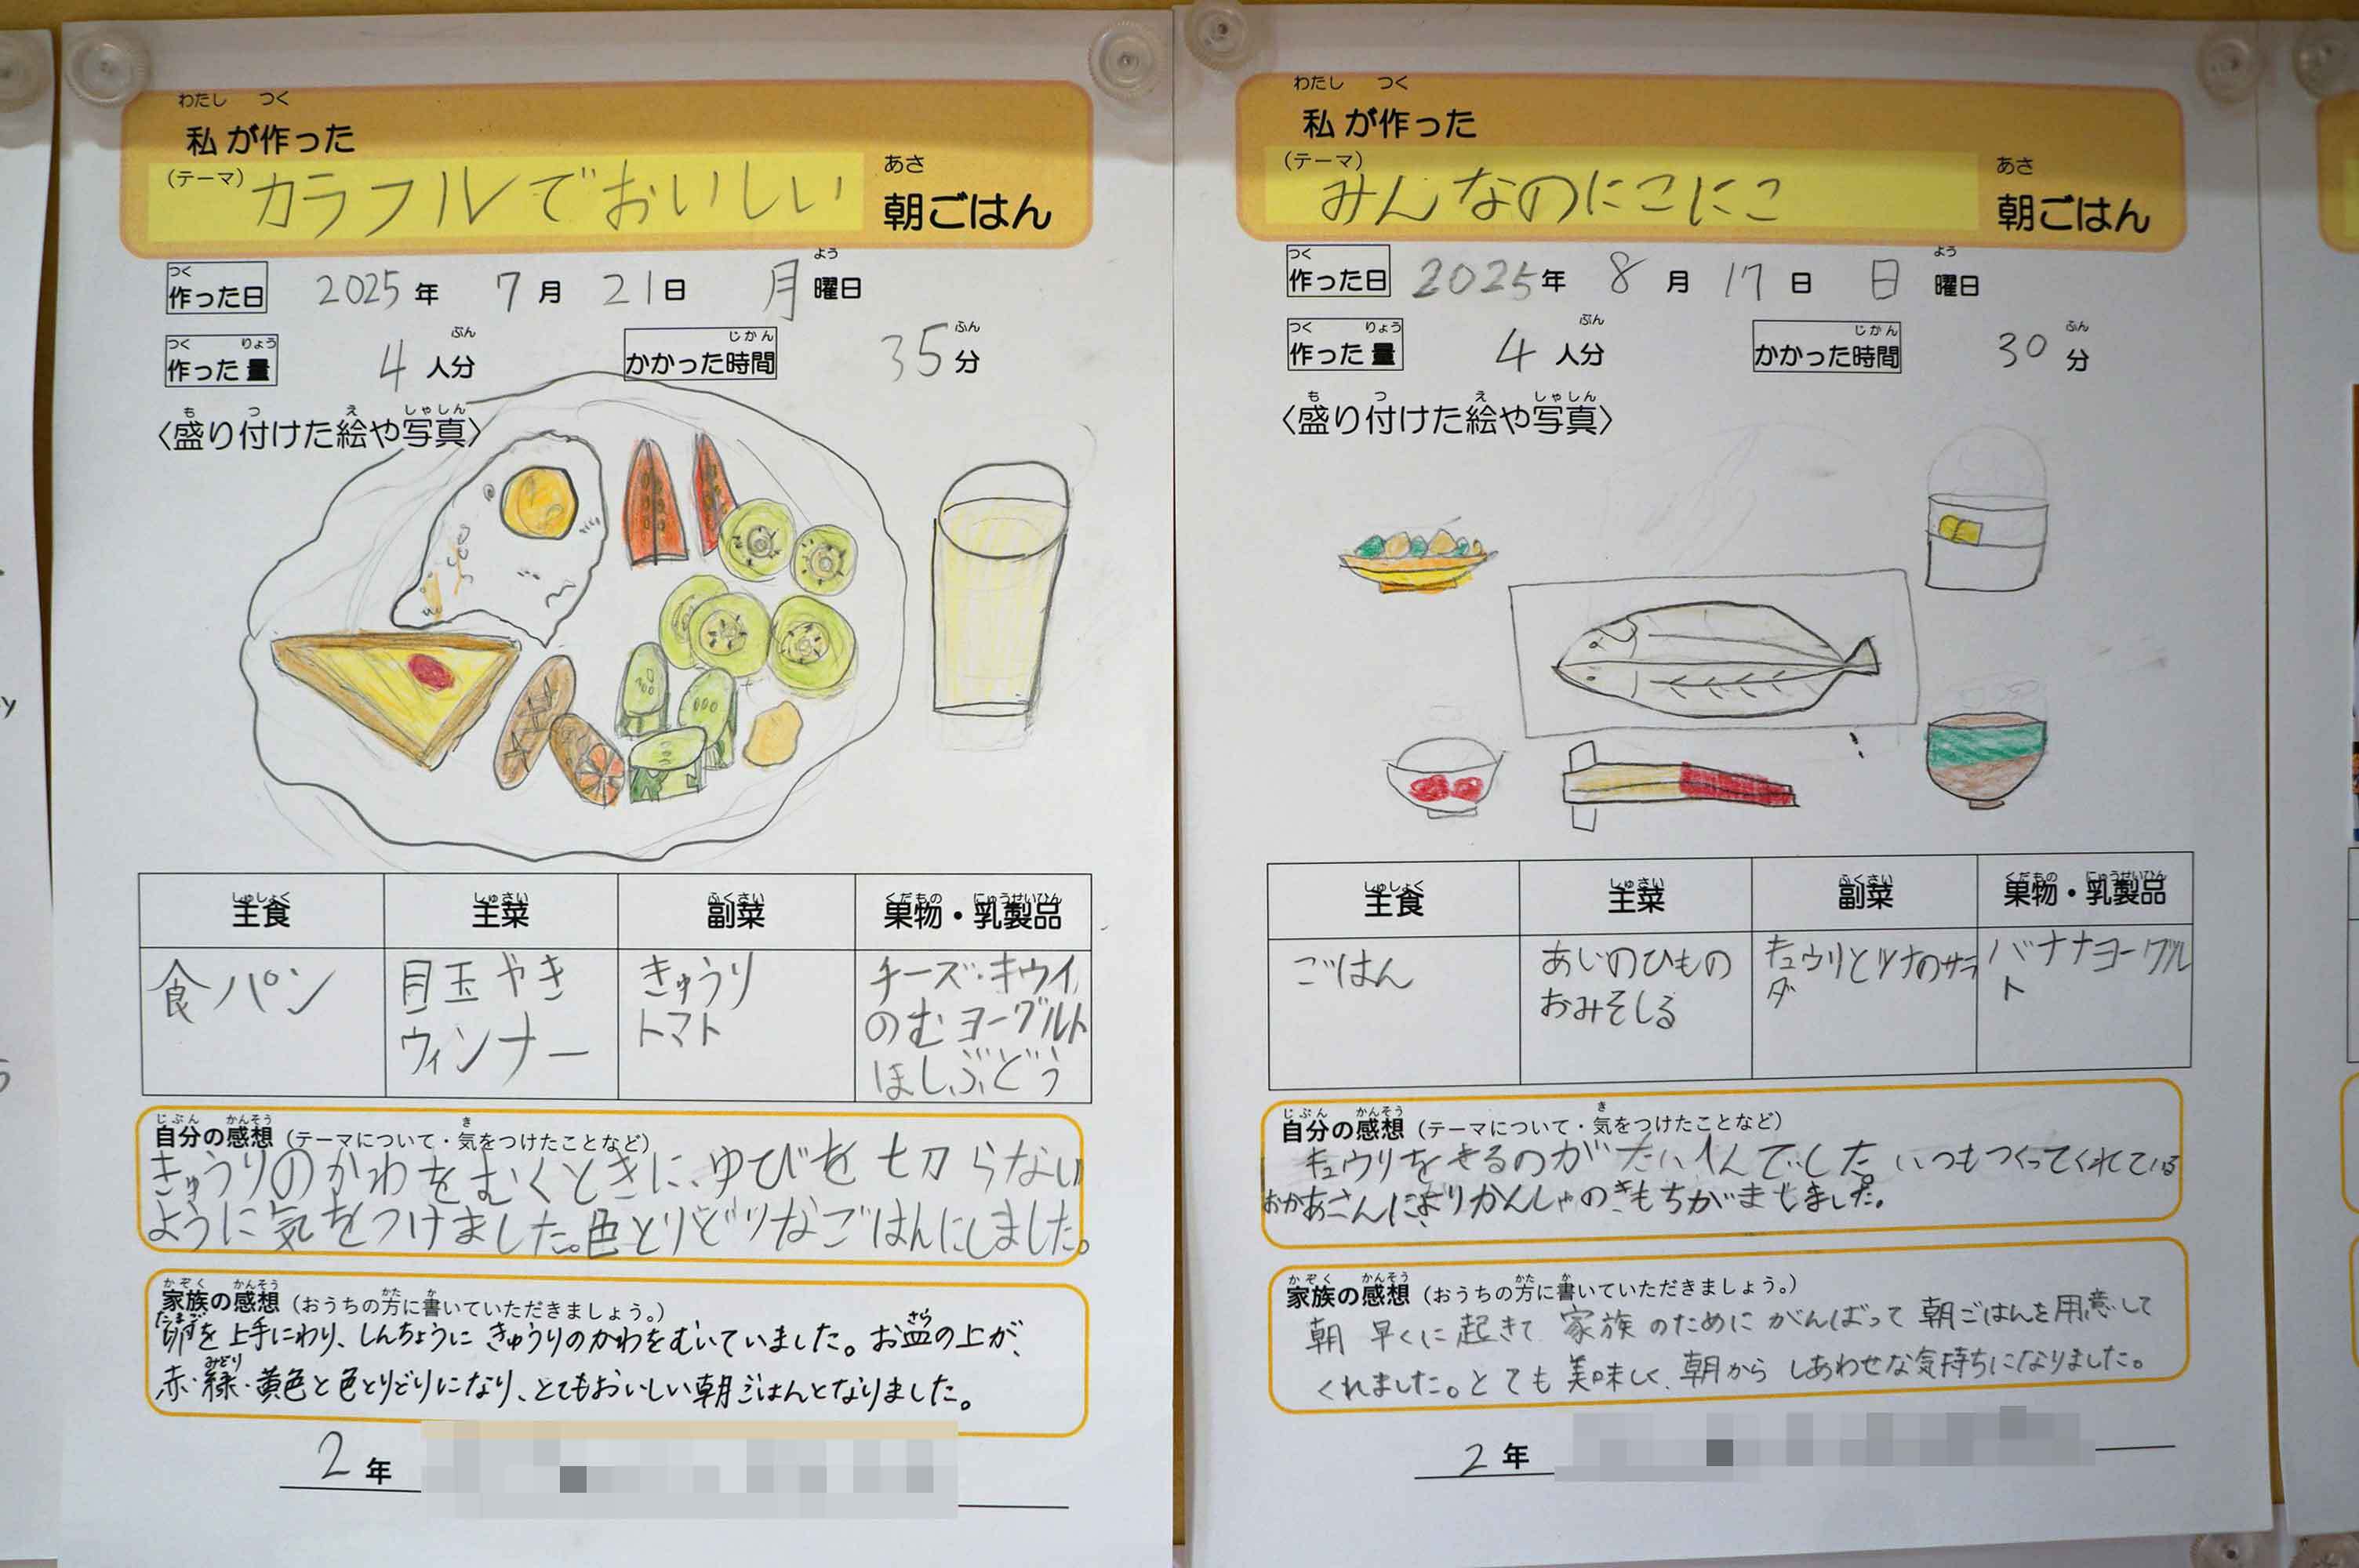 わたし つく
私が作った
(テーマ) カラフルでおいしい
あさ
朝ごはん
つく
作った日 2025年 7月 21日 月曜日
よう
つく りょう
作った量 4人分
ぶん
じかん
かかった時間 35分
ふん
も つ え しゃしん
〈盛り付けた絵や写真〉
しゅしょく しゅさい ふくさい くだもの にゅうせいひん
主食 主菜 副菜 果物・乳製品
食パン
目玉やき
ウィンナー
きゅうり
トマト
チーズ・キウイ
のむヨーグルト
ほしぶどう
じぶん かんそう き
自分の感想（テーマについて・気をつけたことなど）
きゅうりのかわをむくときに、ゆびを切らない
ように気をつけました。色とりどりなごはんにしました。
かぞく かんそう かた か
家族の感想（おうちの方に書いていただきましょう。）
たまご さら
卵を上手にわり、しんちょうにきゅうりのかわをむいていました。お皿の上が、
みどり
赤・緑・黄色と色とりどりになり、とてもおいしい朝ごはんとなりました。
2年
わたし つく
私が作った
(テーマ) みんなのにこにこ
あさ
朝ごはん
つく
作った日 2025年 8月 17日 日曜日
よう
つく りょう
作った量 4人分
ぶん
じかん
かかった時間 30分
ふん
も つ え しゃしん
〈盛り付けた絵や写真〉
しゅしょく しゅさい ふくさい くだもの にゅうせいひん
主食 主菜 副菜 果物・乳製品
ごはん
あじのひもの
おみそしる
キュウリとツナのサラ
ダ
バナナヨーグル
ト
じぶん かんそう き
自分の感想（テーマについて・気をつけたことなど）
キュウリをきるのがたいへんでした。いつもつくってくれている
おかあさんによりかんしゃのきもちがましました。
かぞく かんそう かた か
家族の感想（おうちの方に書いていただきましょう。）
朝早くに起きて家族のためにがんばって朝ごはんを用意して
くれました。とても美味しく、朝からしあわせな気持ちになりました。
2年